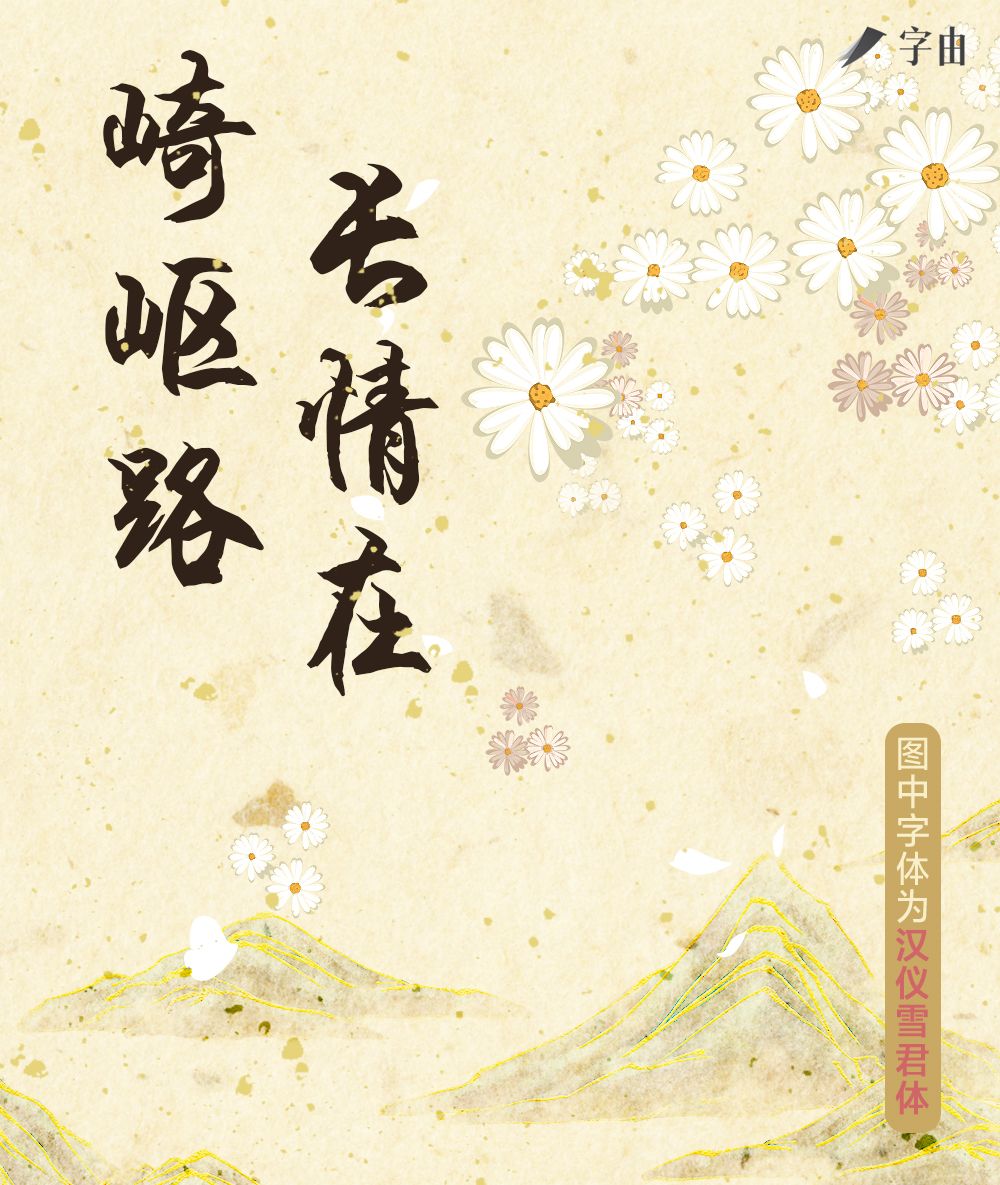 字由
崎岖路
长情在
图中字体为汉仪雪君体